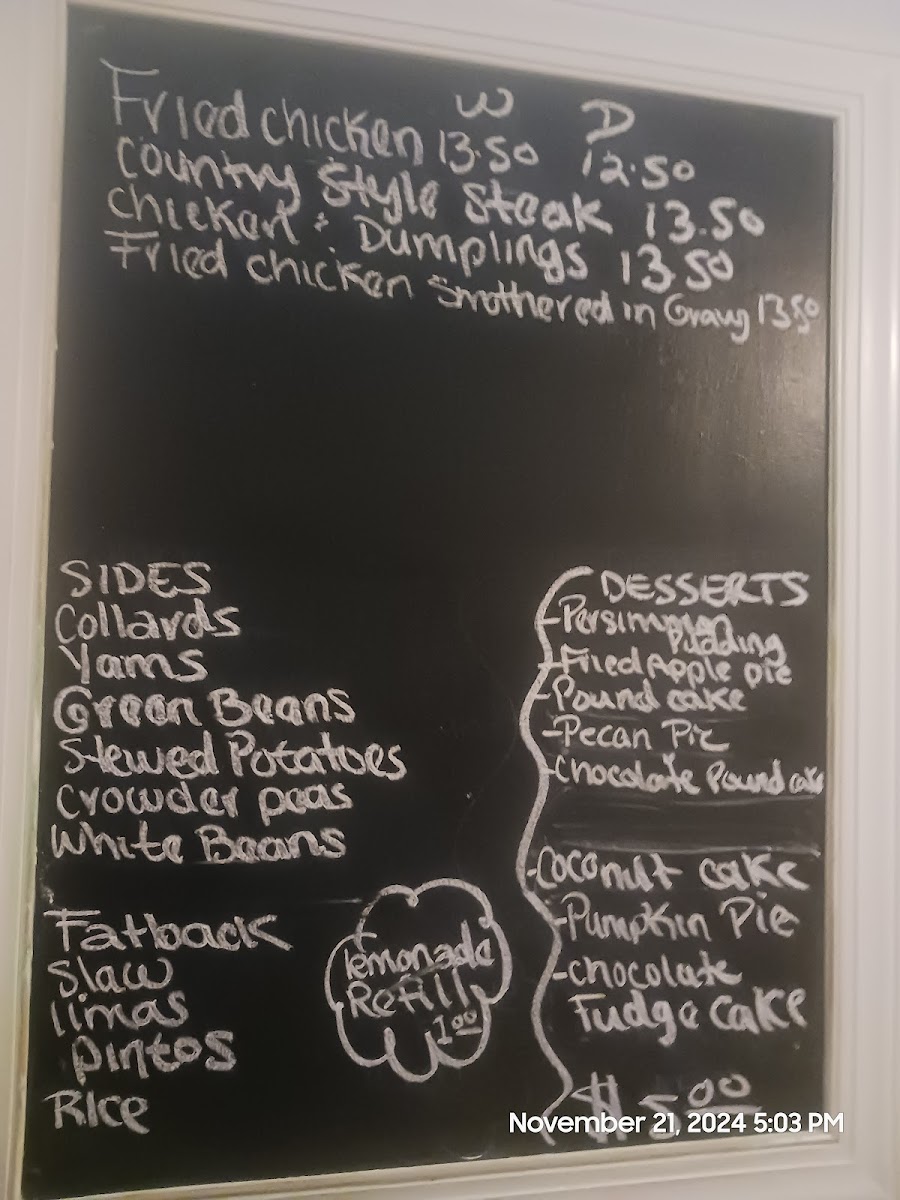 W D
Fried chicken 13.50 12.50
Country Style Steak 13.50
Chicken & Dumplings 13 50
Fried chicken Smothered in Gravy 13 50
SIDES
Collards
Yams
Green Beans
Stewed Potatoes
Crowder peas
White Beans
Fatback
Slaw
limas
pintos
Rice
lemonade
Refill
1 00
DESSERTS
-Persimmon
Pudding
-Fried Apple pie
-Pound cake
-Pecan Pie
-Chocolate Pound cake
-Coconut cake
-Pumpkin Pie
-chocolate
Fudge Cake
$ 5 00
November 21, 2024 5:03 PM